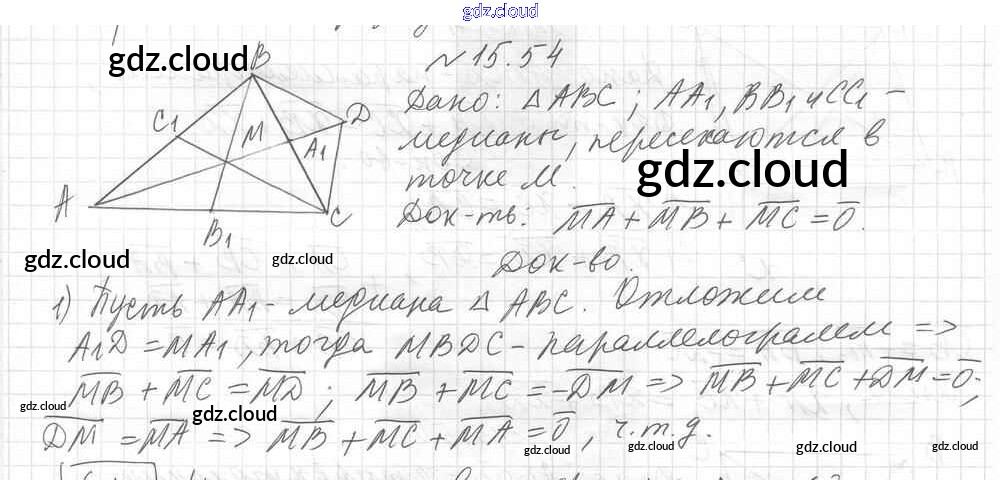 gdz.cloud
gdz.cloud
№15.54
B
D
C₁
M
A₁
A
B₁
C
Дано: △ABC; AA₁, BB₁ и CC₁ –
медианы, пересекаются в
точке M.
gdz.cloud
Док-ть: \overline{MA} + \overline{MB} + \overline{MC} = \overline{0}.
gdz.cloud
gdz.cloud
Док-во.
1) Пусть AA₁ - медиана △ ABC. Отложим
A₁D = MA₁, тогда MBDC - параллелограмм =>
\overline{MB} + \overline{MC} = \overline{MD}; \overline{MB} + \overline{MC} = -\overline{DM} => \overline{MB} + \overline{MC} + \overline{DM} = \overline{0};
gdz.cloud
gdz.cloud
\overline{DM} = \overline{MA} => \overline{MB} + \overline{MC} + \overline{MA} = \overline{0}, ч.т.д.
gdz.cloud
gdz.cloud
gdz.cloud
gdz.cloud